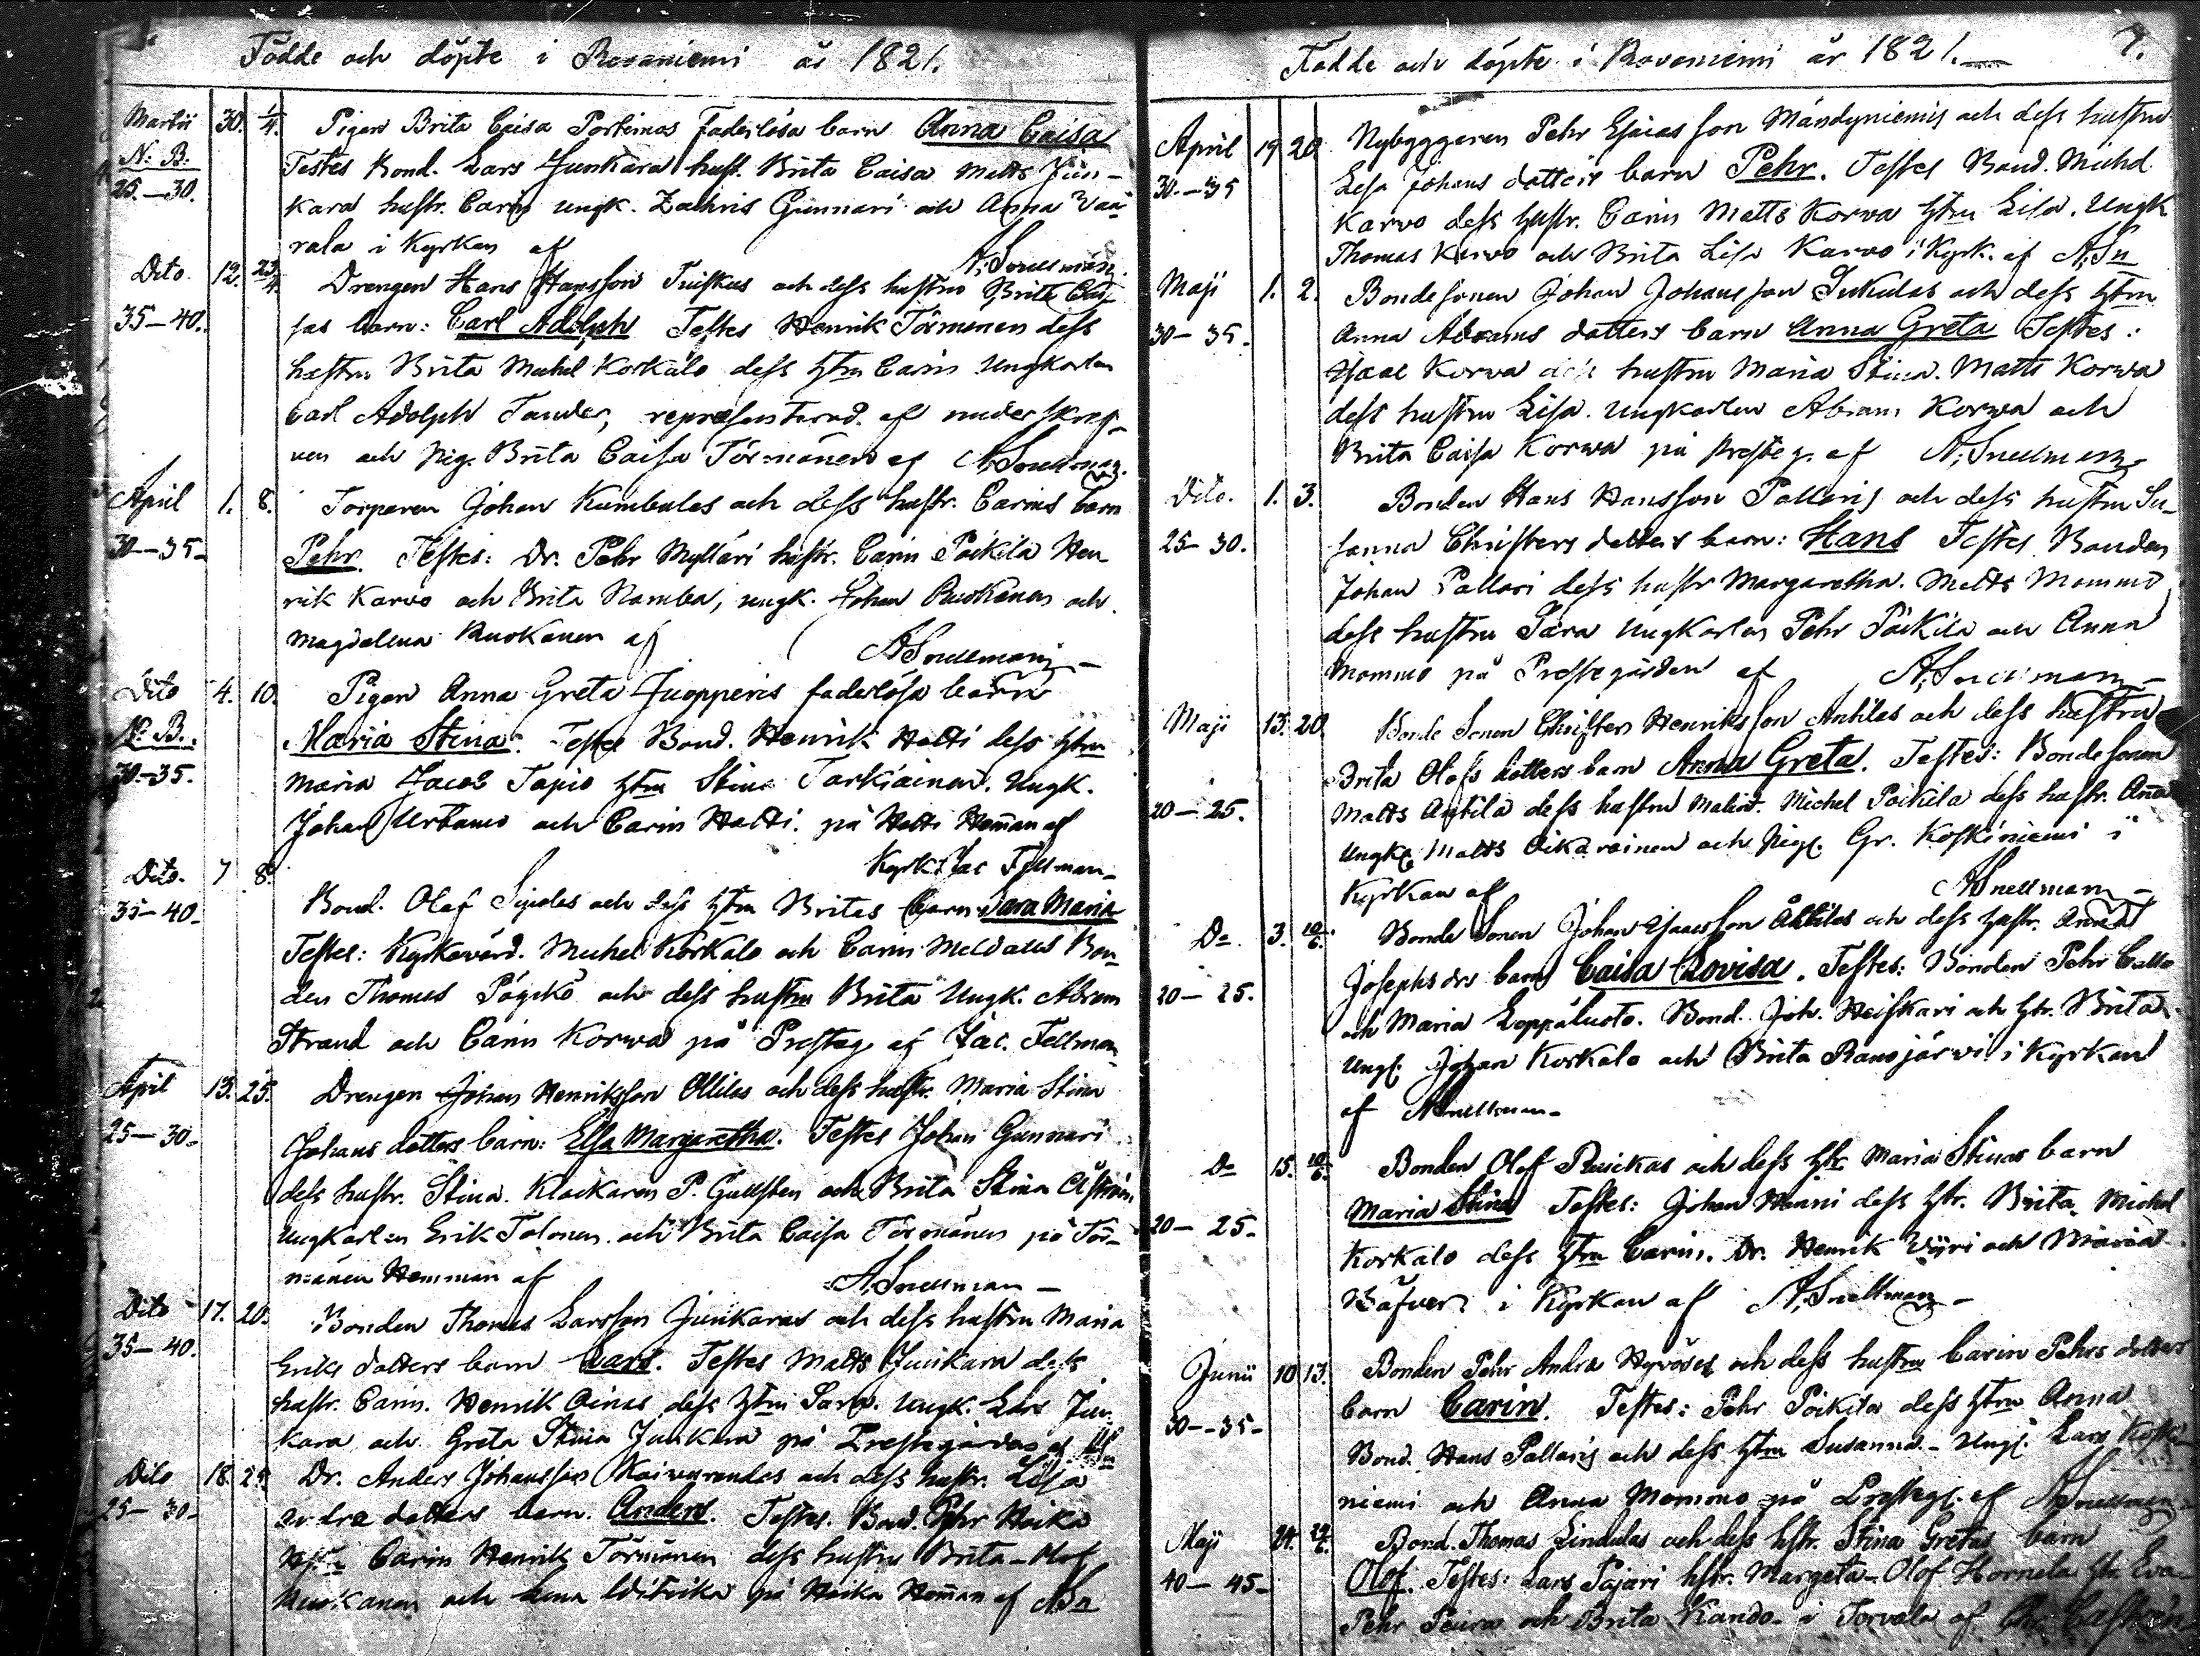 Födde och döpte i Rovaniemi år 1821.
Martii 30. 1/4. Pigan Brita Caisa Portimas faderlösa barn Anna Caisa
N: B: Testes Bond. Lars Junkara hust. Brita Caisa Matts Jun-
25.—30. kara hustr. Carin ungk. Zachris Gunnari och Anna Vaa-
rala i Kyrkan af A. Snellman
Dito 12. 23/4 Drengen Hans Hansson Tuiskus och dess hustru Brita Cai-
35—40. sas barn: Carl Adolph Testes Henrik Törmenen dess
hustru Brita Michel Korkalo dess hstru Carin Ungkarlen
Carl Adolph Tander, representerad af underskref-
ven och Pig. Brita Caisa Törmänen af A. Snellman.
April 1. 8. Torparen Johan Kumbulas och dess hustr. Carins barn
30—35— Pehr. Testes: Dr. Pehr Mylläri hustr. Carin Poikila Hen
rik Karvo och Brita Namba, ungk. Johan Ruokanen och
Magdalena Ruokanen af A Snellman—
Dito 4. 10. Pigan Anna Greta Juopperis faderlösa barn
N: B. Maria Stina. Testes Bond. Henrik Halti dess hstru
30.—35. Maria Jacob Tapio hstru Stina Tarkiainen. Ungk.
Johan Urbano och Carin Halti. på Halti Heman af
Kyrkh Jac Fellman—
Dito. 7 8. Bond. Olof Sipolas och dess hstru Britas barn Sara Maria
35—40— Testes: Kyrkovärd. Michel Korkalo och Carin Bon-
den Thomas Pöyckö och dess hustru Brita Ungk. Abram
Strand och Carin Korwa på Presteg. af Jac. Fellman
April 13. 25. Drengen Johan Henriksson Ollilas och dess hustr. Maria Stina
25—30— Johans dotters barn: Elsa Margaretha. Testes Johan Gunnari
dess hustr. Stina. Klockaren P. Gullsten och Brita Stina Åström
Ungkarlen Erik Tolonen och Brita Caisa Törmänen på Tör-
mänen Hemman af A. Snellman—
Dito 17. 20. Bonden Thomas Larsson Junkaras och dess hustru Maria
35—40. Eriks dotters barn Lars. Testes Matts Junkara dess
hustr. Carin. Henrik Oinas dess hstru Sara. Ungk. Lars Jun-
kara och Greta Stina Junkara på Prestegården af ASn
Dito 18. 24. Dr. Anders Johansson Kaivurendas och dess hustr. Lisa
25—30— andre dotters barn. Anders. Testes. Bond. Pehr Hoika
Carin Henrik Törmänen dess hustru Brita—Olof
Ruokanen och på Hoika Heman af ASn
Födde och döpte i Rovaniemi år 1821.— 7.
April 19 20 Nybyggaren Pehr Esaiasson Mändyniemis och dess hustru
30.—35 Lisa Johans dotters barn Pehr. Testes Bond. Michel
Karvo dess hustr. Carin Matts Korva hstru Lisa. Ungk
Thomas Karvo och Brita Lisa Karvo i Kyrk. af A. Sn
Maji 1. 2. Bondesonen Johan Johansson Sukulas och dess hstru
30—35— Anna Abrams dotters barn Anna Greta Testes:
Isaac Korva och hustru Maria Stina. Matts Korwa
dess hustru Lisa. Ungkarlen Abram Korwa och
Brita Caisa Korwa på Presteg. af A. Snellman—
Dito. 1. 3. Bonden Hans Hansson Pallaris och dess hustru Su-
25—30. sanna Christers dotters barn: Hans Testes Bonden
Johan Pallari dess hustr Margaretha. Matts Mommo
dess hustru Sara Ungkarlen Pehr Poikila och Anna
Mommo på Prestegården af A. Snellman—
Maji 13. 20. Bonde Sonen Christer Henriksson Antilas och dess hustru
20—25. Brita Olofs dotters barn Anna Greta. Testes: Bondesonen
Matts Antila dess hustru Malin. Michel Poikila dess hustr. Anna
Ungk. Matts Oikarainen och Pig. Gr. Koskiniemi i
Kyrkan af A Snellman—
Do 3. 10/6. Bonde Sonen Johan Isacsson Ollilas och dess hustr. Anna
20—25. Josephs drs barn Caisa Lovisa. Testes: Bonden Pehr Callo
och Maria Loppäluoto. Bond. Joh. Heiskari och hstr. Brita
Ungk. Johan Korkalo och Brita Ranojärwi i Kyrkan
af A Snellman—
Do 15. 10/6. Bonden Olof Rusckas och dess hstr Maria Stinas barn
20—25— Maria Stina Testes: Johan Hanni dess hstr. Brita, Michel
Korkalo dess hstru Carin. Dr. Henrik Viiri och Maria
Bäfver i Kyrkan af A. Snellman—
Junii 10 13. Bonden Pehr Andra Hyvöses och dess hustru Carin Pehrs dotters
30—35— barn Carin. Testes: Pehr Poikila dess hstru Anna
Bond. Hans Pallaris och dess hstru Susanna.— Ungk. Lars Koski-
niemi och Anna Mommo på Presteg. af A Snellman
Maji 24. Bond. Thomas Lindulas och dess hstr. Stina Gretas barn
40—45— Olof. Testes: Lars Pajari hstr. Margeta— Olof Hornela hstr Eva—
Pehr Peura och Brita Kando— i Torvola af